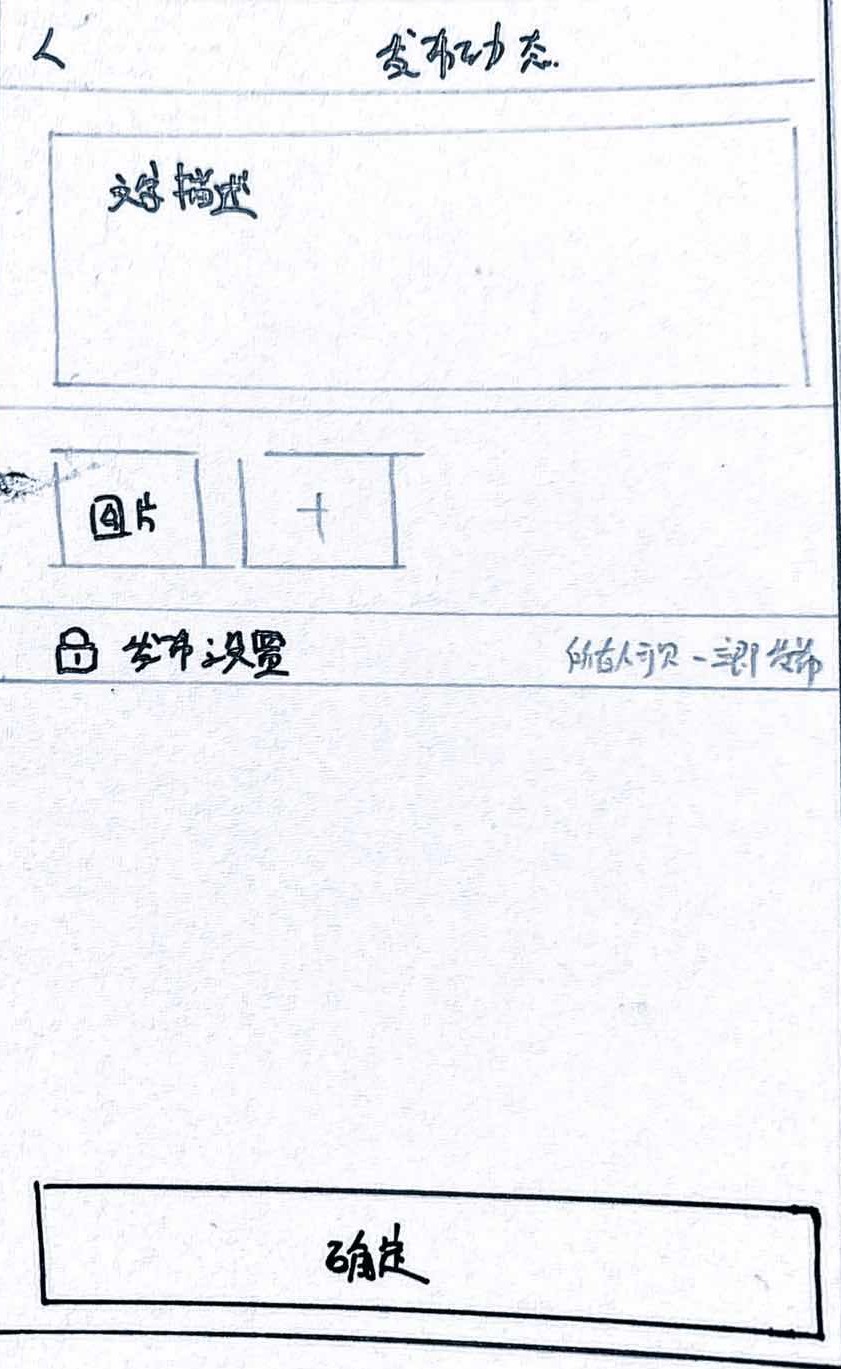 发布动态
文字描述
图片 +
发布设置 所有人可见-立即发布
确定